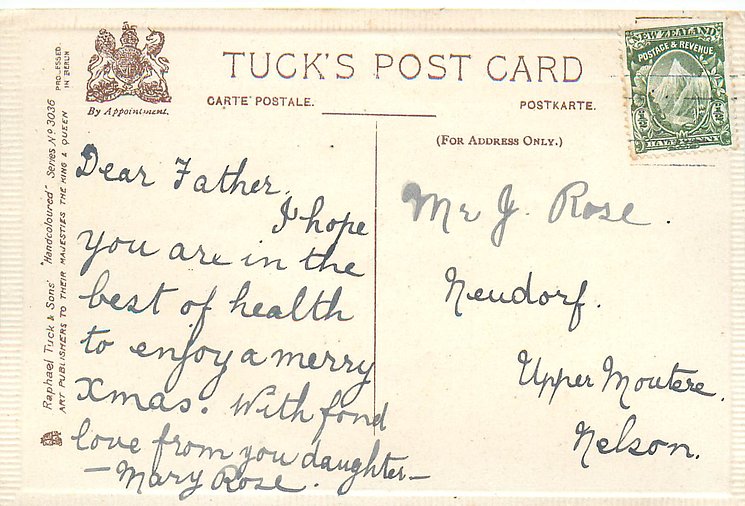 TUCK'S POST CARD
CARTE POSTALE.
POSTKARTE.
By Appointment.
(FOR ADDRESS ONLY.)
PROCESSED
IN BERLIN
Raphael Tuck & Sons' "Handcoloured" Series Nº 3036
ART PUBLISHERS TO THEIR MAJESTIES THE KING & QUEEN
NEW ZEALAND
POSTAGE & REVENUE
HALF PENNY
Dear Father.
I hope
you are in the
best of health
to enjoy a merry
xmas. With fond
love from you daughter—
—Mary Rose.
Mr J. Rose.
Neudorf.
Upper Moutere.
Nelson.